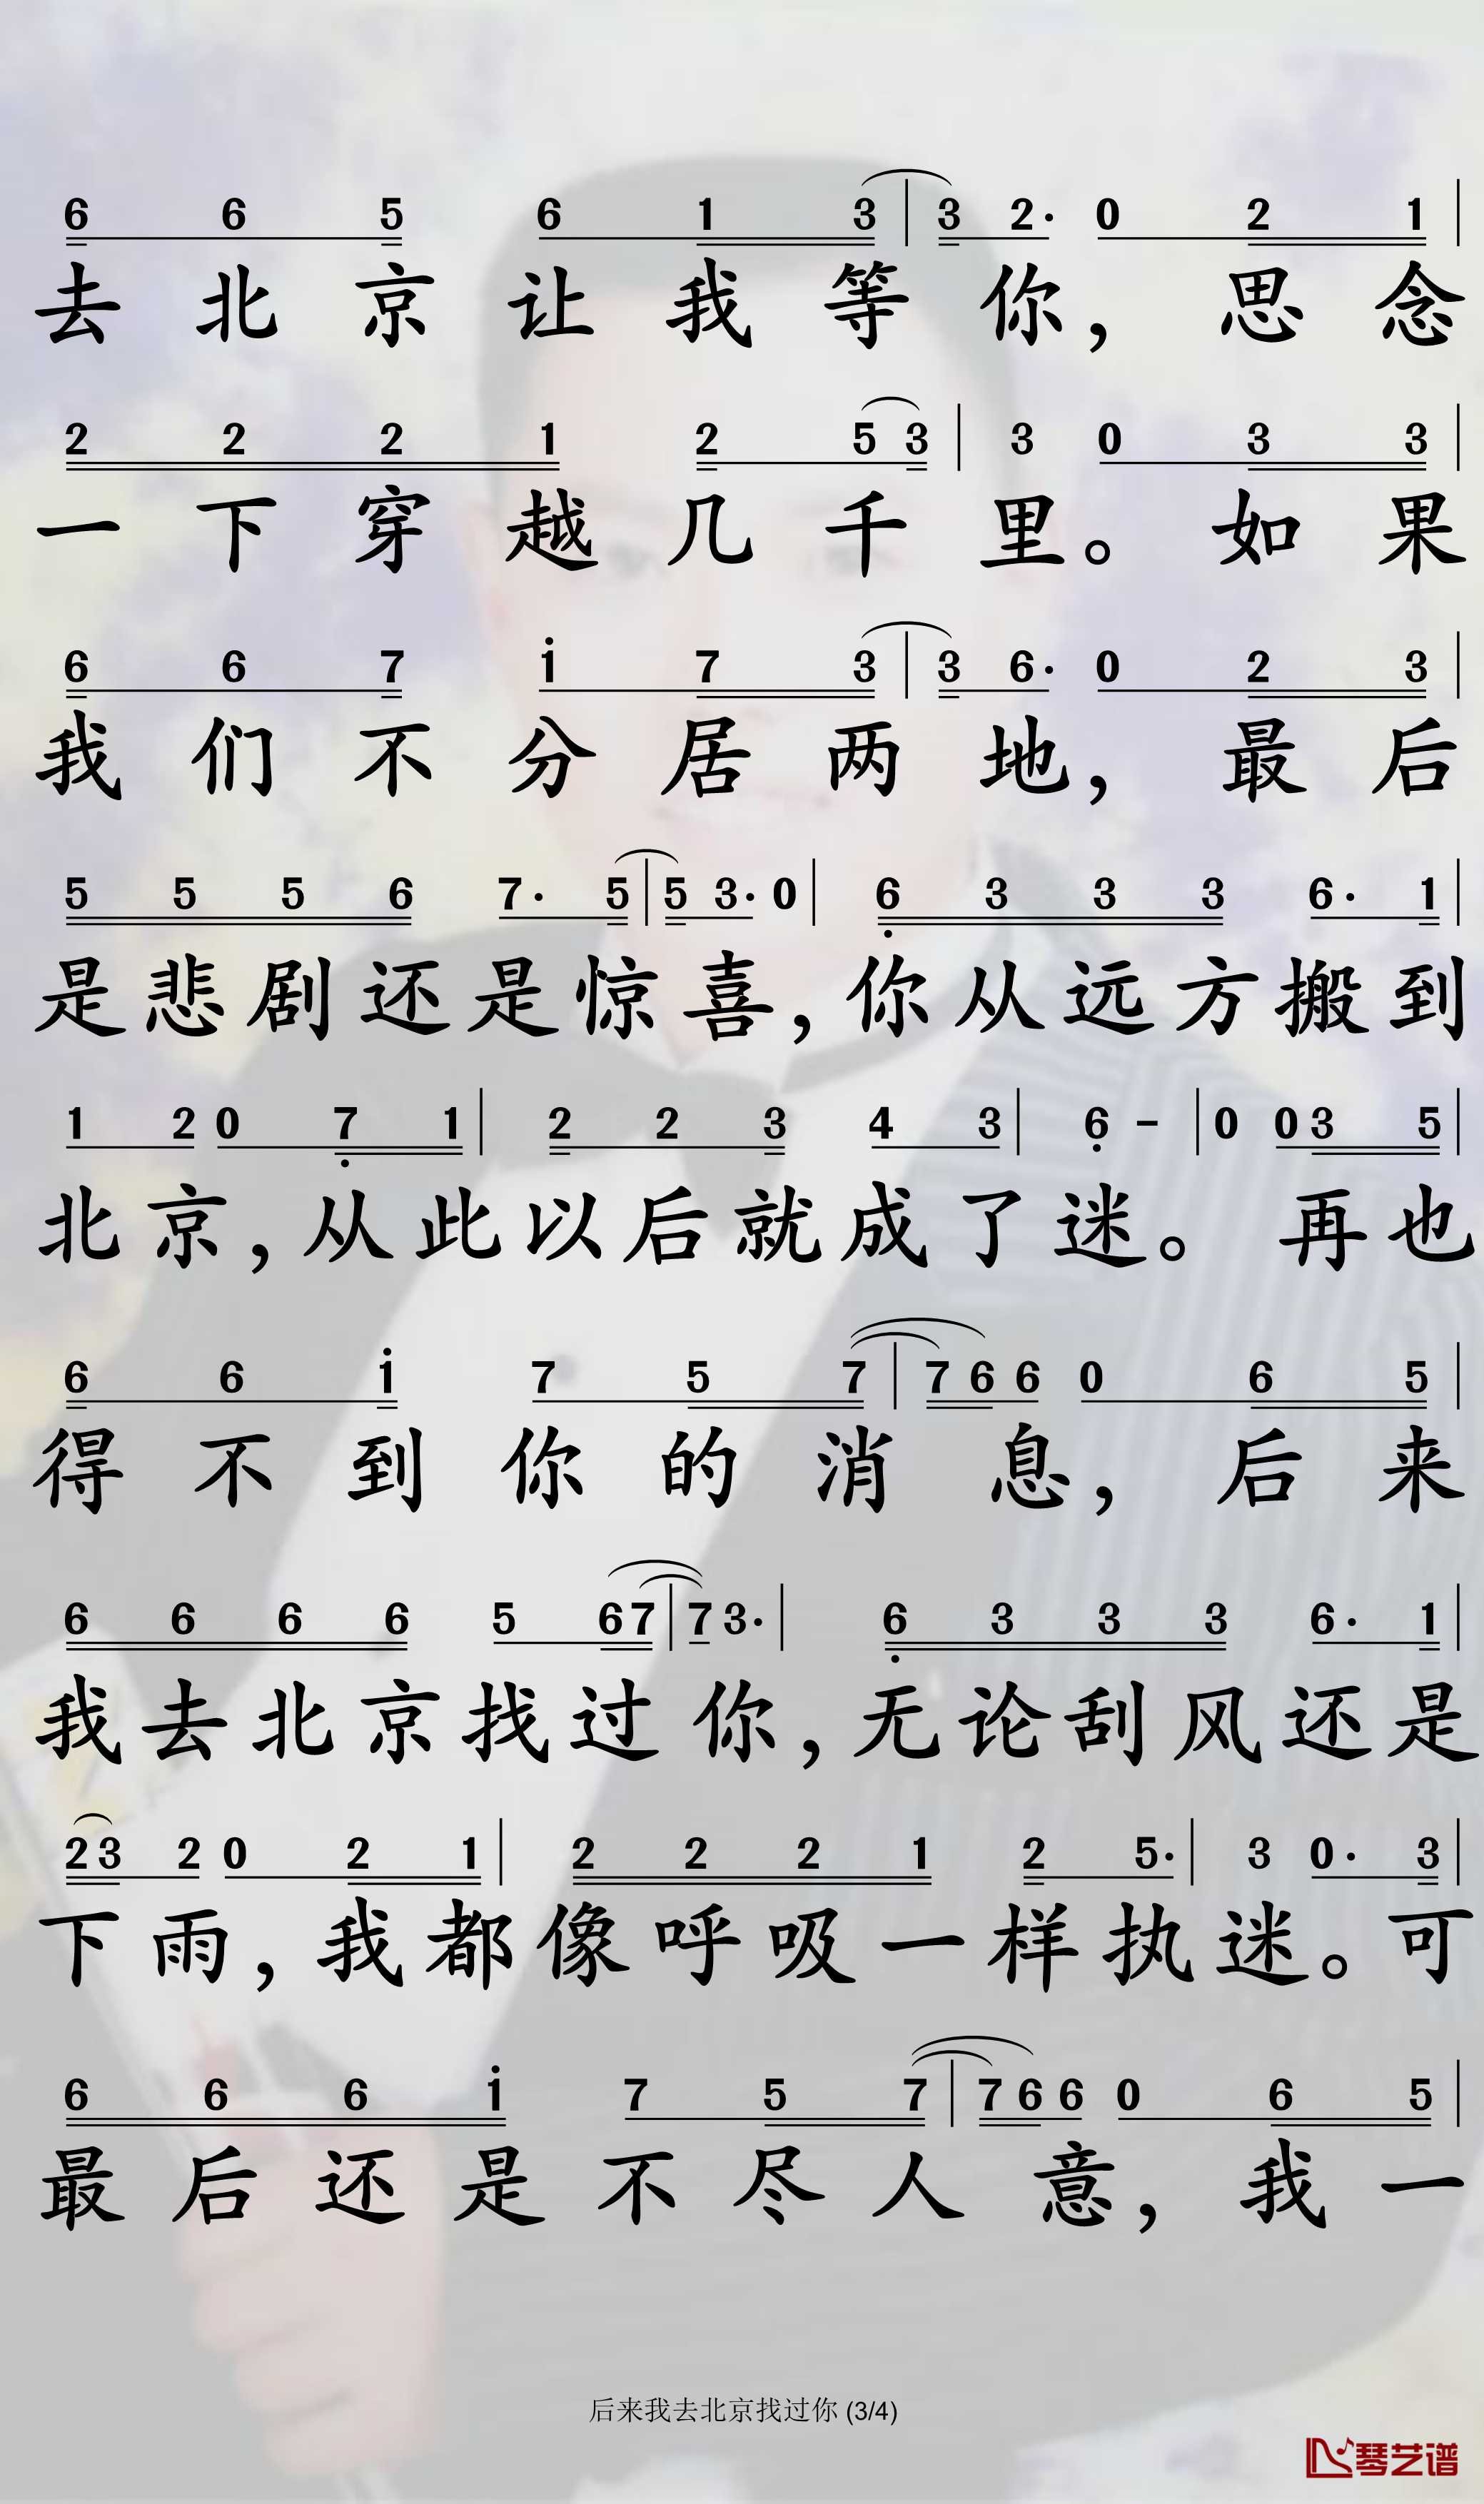 6 6 5 6 1 3 | 3 2· 0 2 1 |
去北京让我等你，思念
2 2 2 1 2 5 3 | 3 0 3 3 |
一下穿越几千里。如果
6 6 7 i 7 3 | 3 6· 0 2 3 |
我们不分居两地，最后
5 5 5 6 7· 5 | 5 3· 0 | 6̣ 3 3 3 6· 1 |
是悲剧还是惊喜，你从远方搬到
1 2 0 7̣ 1 | 2 2 3 4 3 | 6̣ - | 0 0 3 5 |
北京，从此以后就成了迷。再也
6 6 i 7 5 7 | 7 6 6 0 6 5 |
得不到你的消息，后来
6 6 6 6 5 6 7 | 7 3· | 6̣ 3 3 3 6· 1 |
我去北京找过你，无论刮风还是
2 3 2 0 2 1 | 2 2 2 1 2 5· | 3 0· 3 |
下雨，我都像呼吸一样执迷。可
6 6 6 i 7 5 7 | 7 6 6 0 6 5 |
最后还是不尽人意，我一
后来我去北京找过你 (3/4)
琴艺谱